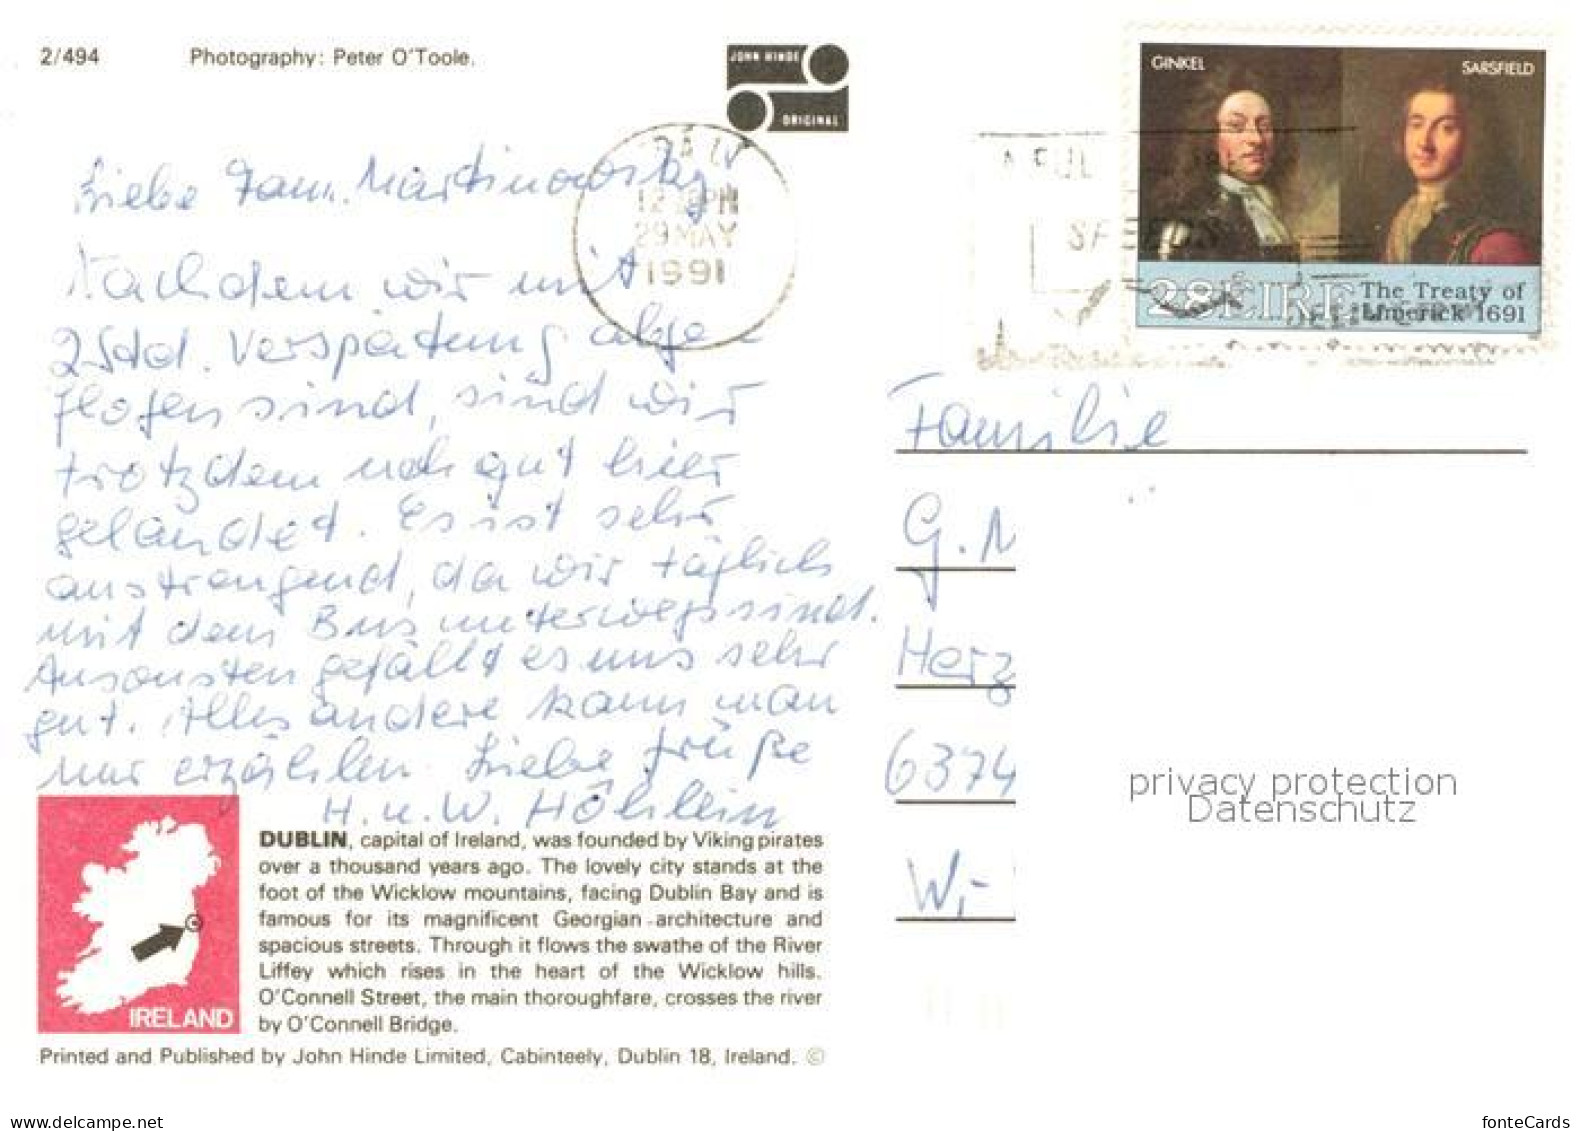 2/494 Photography: Peter O'Toole.
JOHN HINDE
ORIGINAL
GINKEL
SARSFIELD
28 EIRE
The Treaty of
Limerick 1691
29 MAY
1991
SPEEDS
Liebe Fam. Martinowsky
Nachdem wir mit
2 Std. Verspätung abge-
flogen sind, sind wir
trotzdem noch gut hier
gelandet. Es ist sehr
anstrengend, da wir täglich
mit dem Bus unterwegs sind.
Ansonsten gefällt es uns sehr
gut. Alles andere kann man
nur erzählen. Liebe Grüße
H. u. W.
Familie
G. M
Herz
6374
W,-
privacy protection
Datenschutz
DUBLIN, capital of Ireland, was founded by Viking pirates
over a thousand years ago. The lovely city stands at the
foot of the Wicklow mountains, facing Dublin Bay and is
famous for its magnificent Georgian architecture and
spacious streets. Through it flows the swathe of the River
Liffey which rises in the heart of the Wicklow hills.
O'Connell Street, the main thoroughfare, crosses the river
by O'Connell Bridge.
IRELAND
Printed and Published by John Hinde Limited, Cabinteely, Dublin 18, Ireland. ©
www.delcampe.net
fonteCards